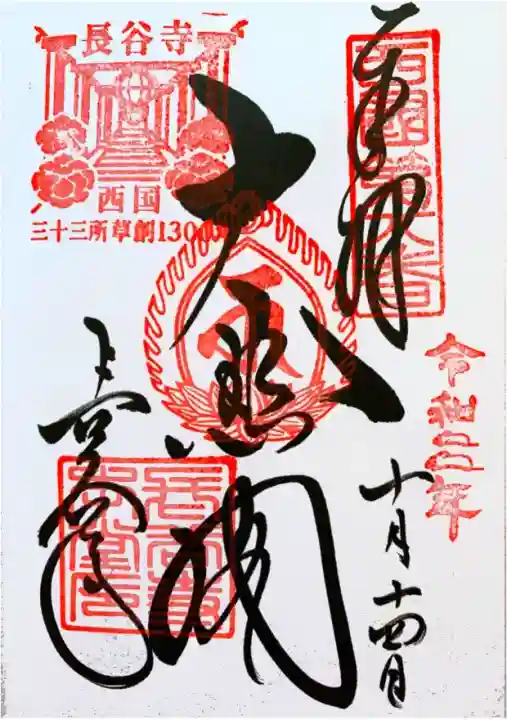 奉拝
西國第八番
令和二年
十月十四日
大悲閣
長谷寺
西国
三十三所草創1300
長谷寺